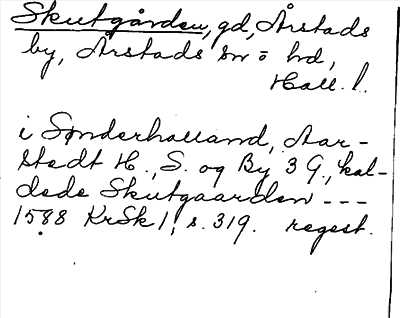 Skutgården, gd, Årstads
by, Årstads sn o hd,
Hall. l.
i Sønderhalland, Aar-
stedt H., S. og By 3 G., kal-
dede Skutgaarden ---
1588 KrSk I, s. 319. regest.